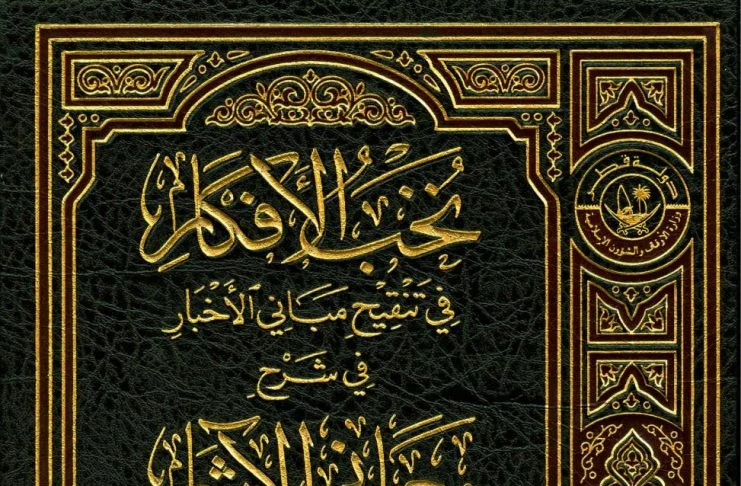 نُخَبُ الأَفْكَارِ
فِي تَنْقِيحِ مَبَانِي الأَخْبَارِ
فِي شَرْحِ
دولة قطر
وزارة الأوقاف والشؤون الإسلامية